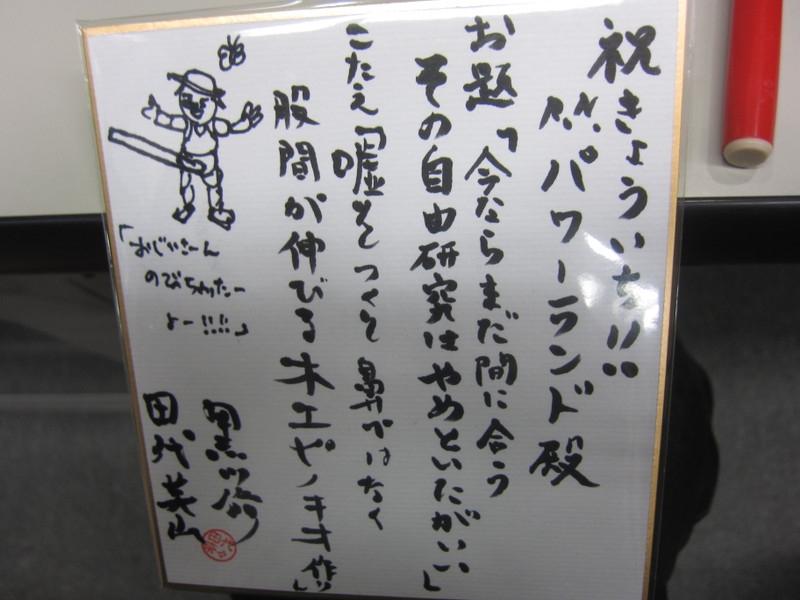 祝きょういち!!
パワーランド殿
お題「今ならまだ間に合う
その自由研究はやめといたがいい」
こたえ「嘘をつくと鼻ではなく
股間が伸びる木工ピノキオ作り」
「おじいさーん
のびちゃったー
よー!!!!」
田代英山